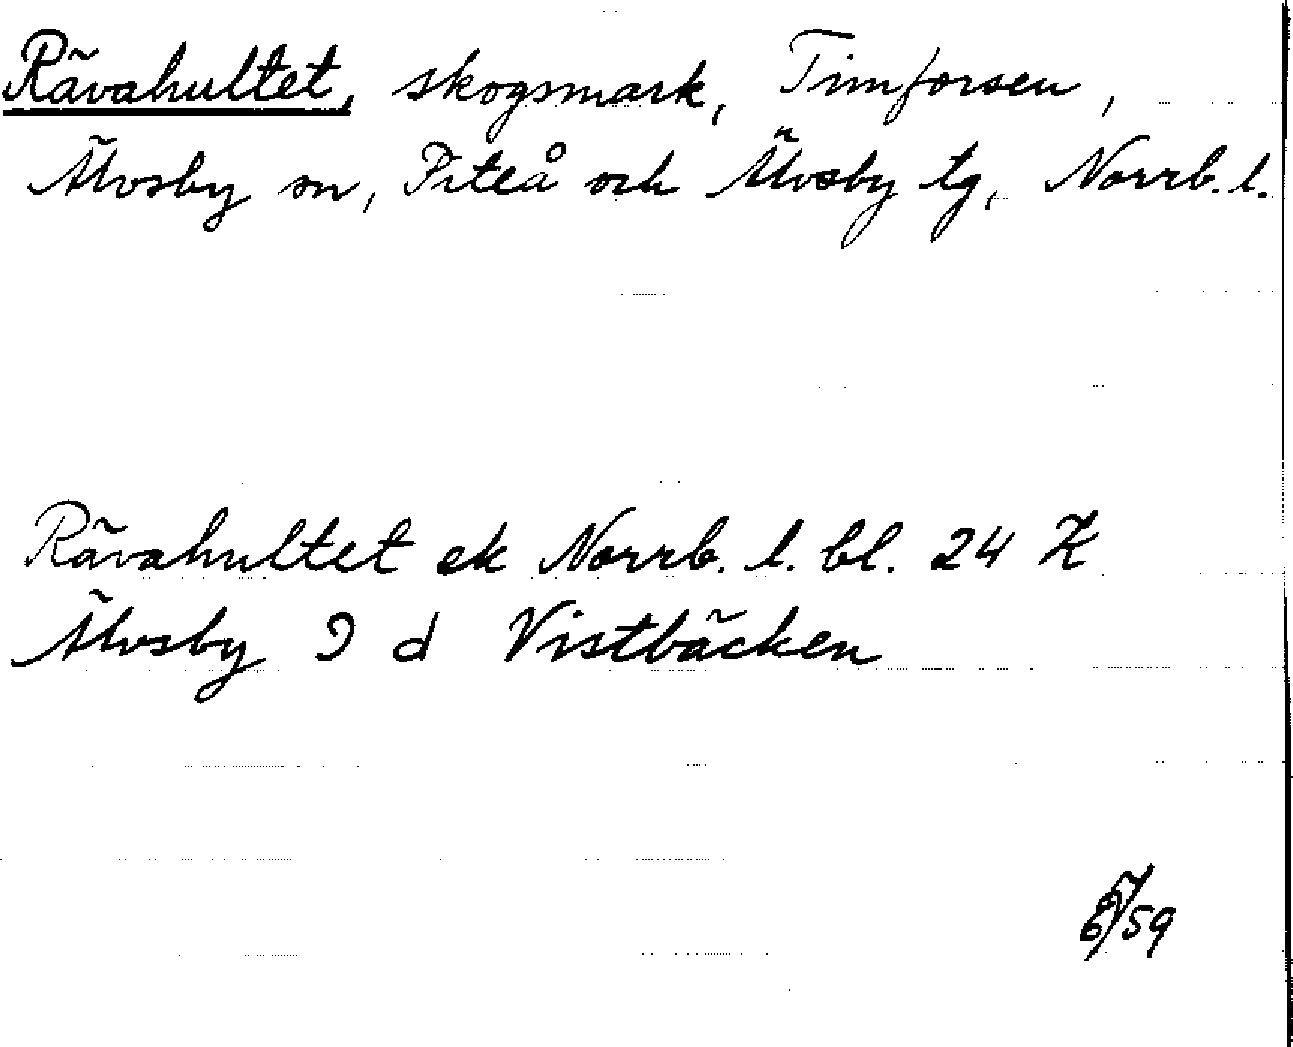 Rävahultet, skogsmark, Timforsen,
Älvsby sn, Piteå och Älvsby tg, Norrb. l.
Rävahultet ek Norrb. l. bl. 24 K
Älvsby I d Vistbäcken
59